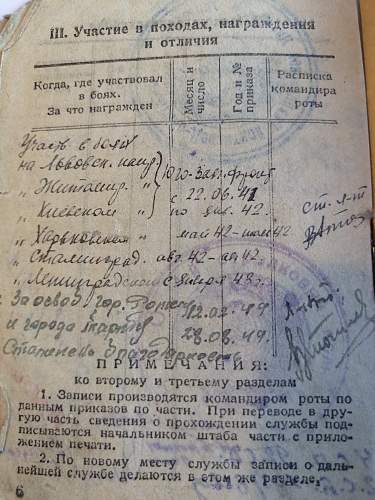 III. Участие в походах, награждения
и отличия
Когда, где участвовал
в боях.
За что награжден
Месяц и
число
Год и №
приказа
Расписка
командира
роты
Участ. в боях
на Львовск. напр.
" Житомир. "
" Киевском "
Юго-Зап. фронт
с 22.06.41
по янв. 42.
ст. л-т
" Харьковском май 42 - июль 42
" Сталинград. авг. 42 - 42.
" Ленинградском с января 43 г.
За освоб. гор. 12.02.44
и города Тарту 28.08.44.
Благодарность
ПРИМЕЧАНИЯ:
ко второму и третьему разделам
1. Записи производятся командиром роты по
данным приказов по части. При переводе в дру-
гую часть сведения о прохождении службы под-
писываются начальником штаба части с прило-
жением печати.
2. По новому месту службы записи о даль-
нейшей службе делаются в этом же разделе.
6